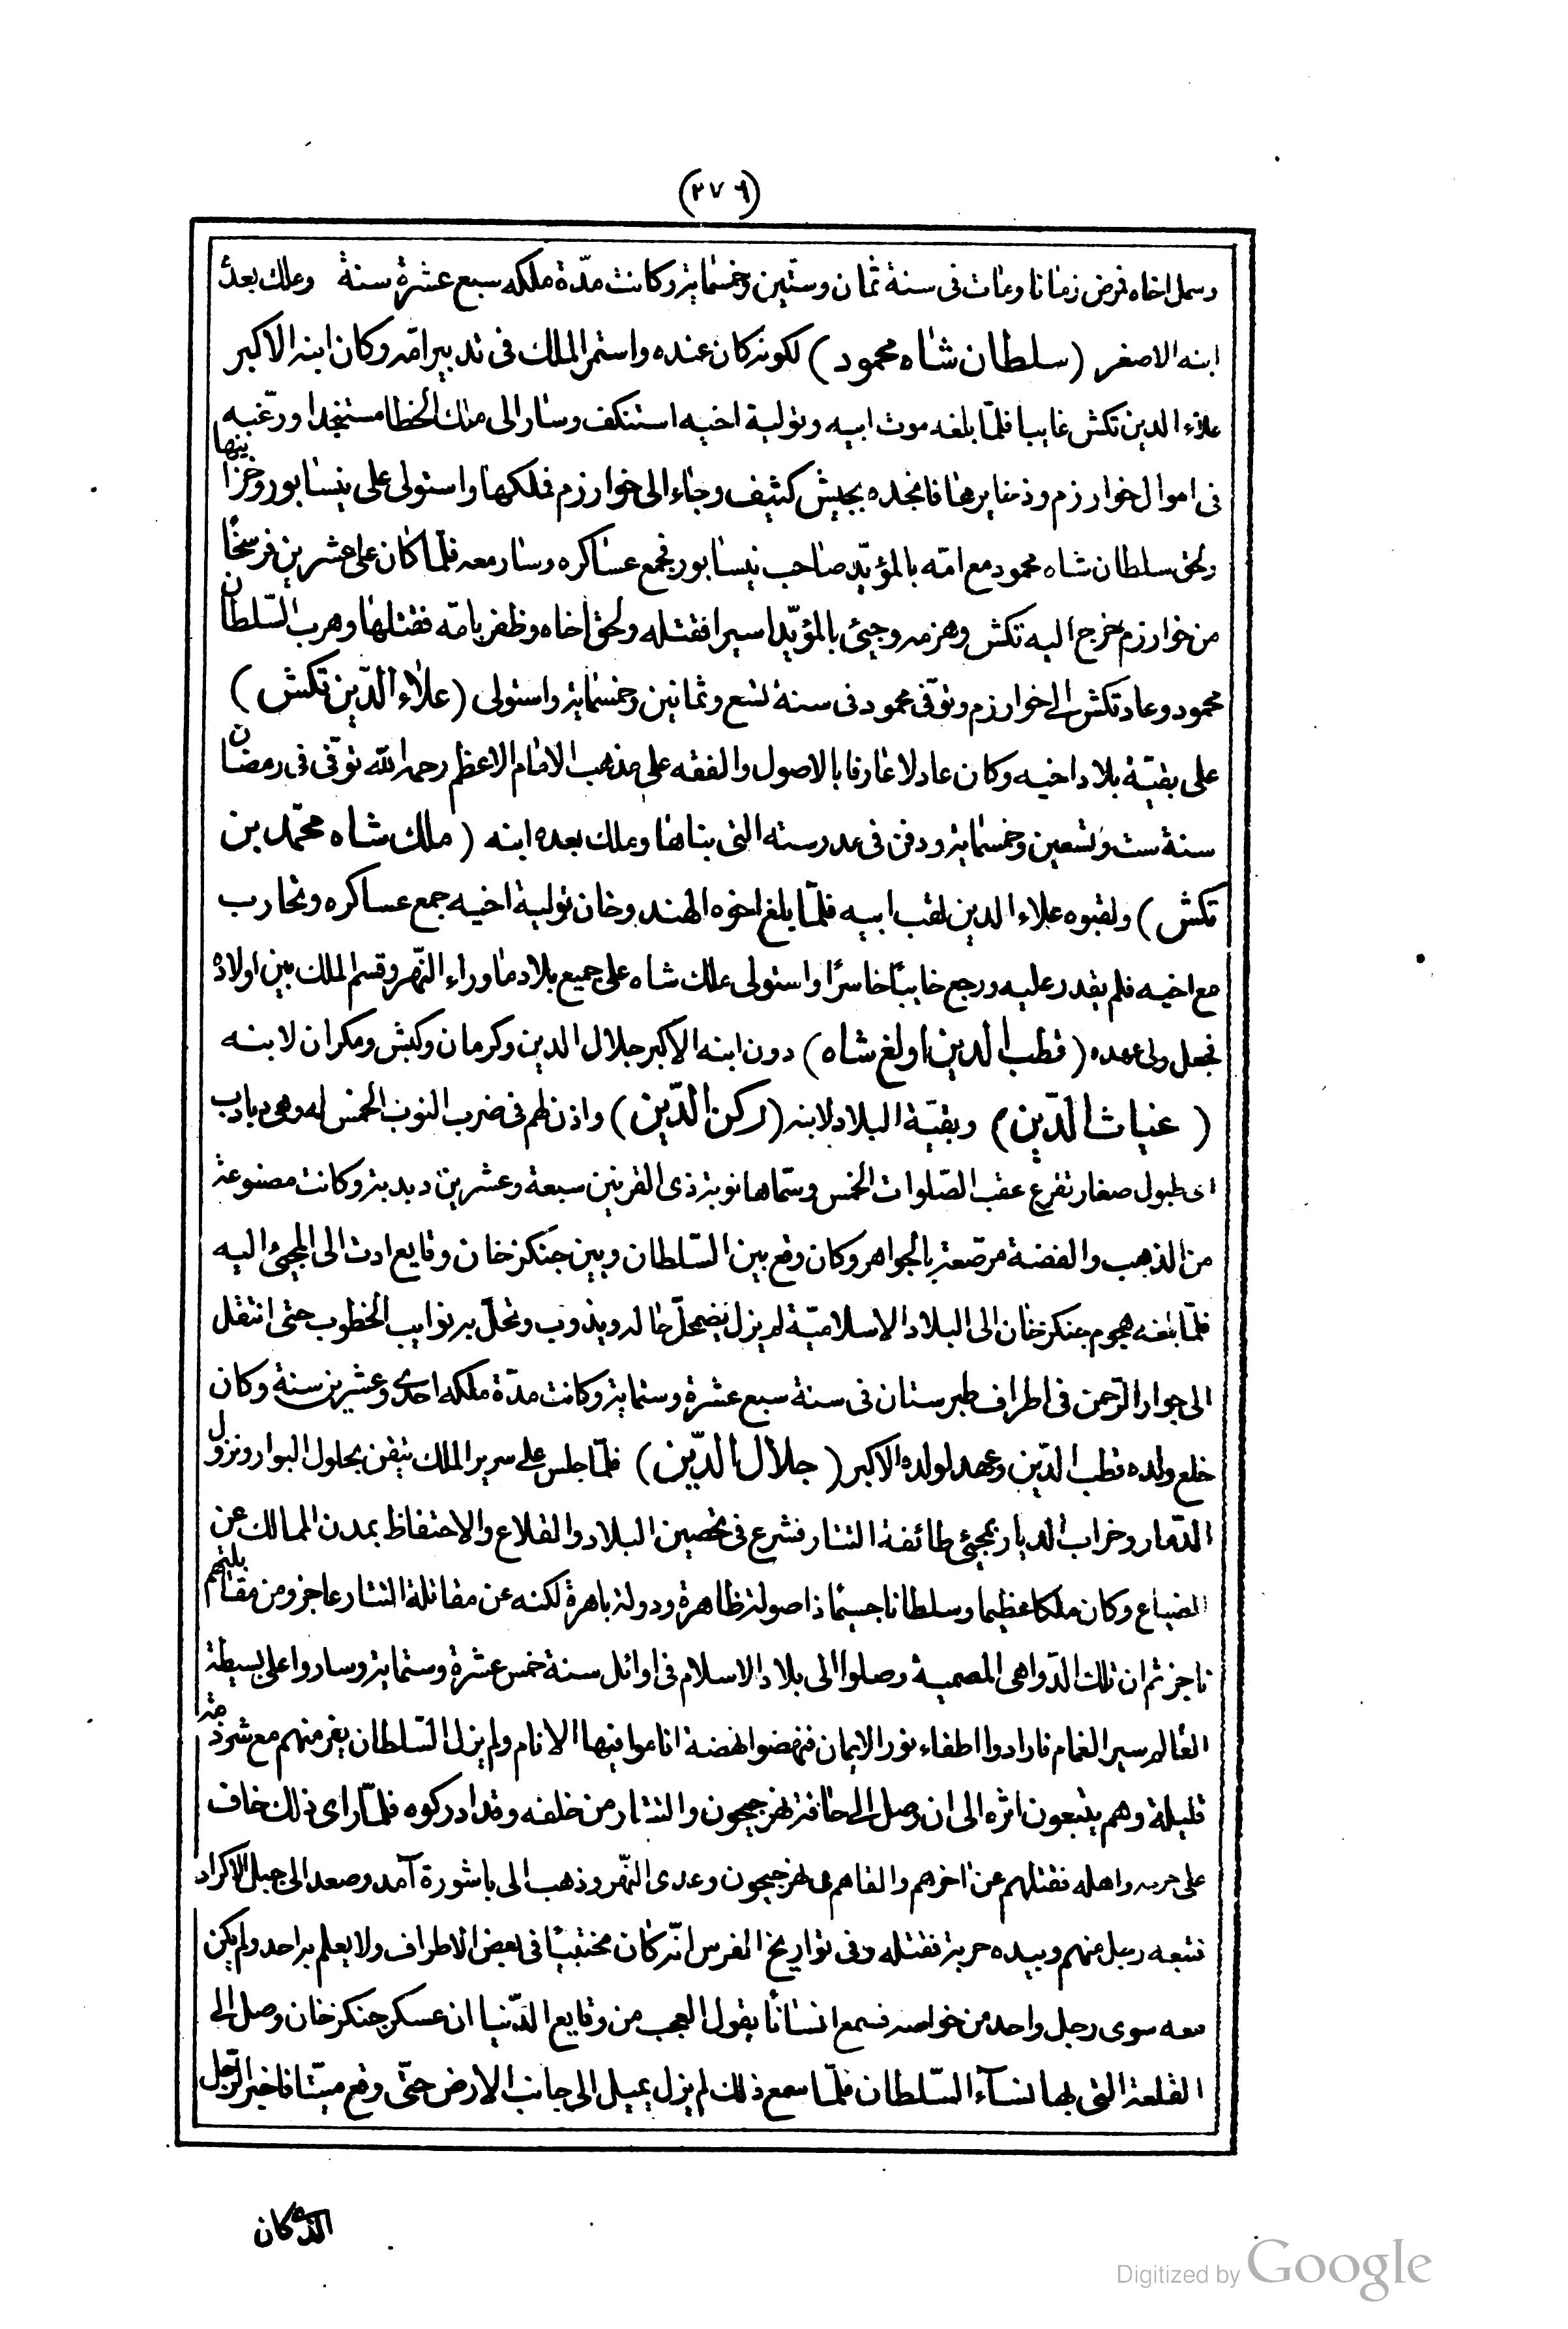 (٢٧٩)
وسمل اخاه فمرض زمانا ومات فى سنة ثمان وستين وخمسماية وكانت مدّة ملكه سبع عشرة سنة وملك بعده
ابنه الاصغر (سلطان شاه محمود) لكونه كان عنده واستمر الملك فى تدبير امّه وكان ابنه الاكبر
علاء الدين تكش غايبا فلمّا بلغه موت ابيه وتولية اخيه استنكف وسار الى ملك الخطا مستنجدا ورغّبه
فى اموال خوارزم وذخايرها فانجده بجيش كثيف وجاء الى خوارزم فملكها واستولى على نيسابور وحزا بينها
ولحق سلطان شاه محمود مع امّه بالمؤيّد صاحب نيسابور فجمع عساكره وسار معه فلمّا كان على عشرين فرسخًا
من خوارزم خرج اليه تكش وهزمه وجيئ بالمؤيّد اسيرا فقتله ولحق اخاه وظفر بامّه فقتلها وهرب السّلطان
محمود وعاد تكش الى خوارزم وتوّفى محمود فى سنة تسع وثمانين وخمسماية واستولى (علاء الدّين تكش)
على بقيّة بلاد اخيه وكان عادلا عارفا بالاصول والفقه على مذهب الامام الاعظم رحمه الله توّفى فى رمضان
سنة ست وتسعين وخمسماية ودفن فى مدرسته التى بناها وملك بعده ابنه (ملك شاه محمّد بن
تكش) ولقبوه علاء الدين لقب ابيه فلمّا بلغ اخوه الهند وخان تولية اخيه جمع عساكره وتحارب
مع اخيه فلم يقدر عليه ورجع خايبًا خاسرًا واستولى ملك شاه على جميع بلاد ماوراء النّهر وقسم الملك بين اولاده
فجعل ولى عهده (قطب الدين اولغ شاه) دون ابنه الاكبر جلال الدين وكرمان وكيش ومكران لابنه
(غياث الدّين) وبقيّة البلاد لابنه (ركن الدّين) واذن لهم فى ضرب النوب الخمس له وهى دبادب
اى طبول صغار تقرع عقب الصّلوات الخمس وسمّاها نوبة ذى القرنين سبعة وعشرين دبدبة وكانت مصنوعة
من الذهب والفضة مرصّعة بالجواهر وكان وقع بين السّلطان وبين جنكزخان وقايع ادت الى المجيئ اليه
فلمّا بلغه هجوم جنكزخان الى البلاد الاسلاميّة لم يزل يضمحلّ حاله ويذوب وتحلّ به نوايب الخطوب حتى انتقل
الى جوار الرّحمن فى اطراف طبرستان فى سنة سبع عشرة وستماية وكانت مدّة ملكه احدى وعشرين سنة وكان
خلع ولده قطب الدّين وعهد لولده الاكبر (جلال الدّين) فلمّا جلس على سرير الملك تيقن بحلول البوار ونزول
الدّمار وخراب الديار بمجيئ طائفة التتار فشرع فى تحصين البلاد والقلاع والاحتفاظ بمدن الممالك عن
الضياع وكان ملكا عظيما وسلطانا جسيمًا ذا صولة ظاهرة ودولة باهرة لكنه عن مقاتلة التتار عاجز ومن مقابلتهم
ناجز ثم ان تلك الدّواهى المصمية وصلوا الى بلاد الاسلام فى اوائل سنة خمس عشرة وستماية وساروا على بسيطة
العالم سير الغمام فارادوا اطفاء نور الايمان فنهضوا نهضة اناموا فيها الانام ولم يزل السّلطان يفر منهم مع شرذمة
قليلة وهم يتبعون اثره الى ان وصل الى حافة نهر جيحون والتتار من خلفه وقد ادركوه فلمّا راى ذلك خاف
على حرمه واهله فقتلهم عن اخرهم والقاهم فى نهر جيحون وعدى النّهر وذهب الى باشورة آمد وصعد الى جبل الاكراد
فتبعه رجل منهم وبيده حربة فقتله وفى تواريخ الفرس انّه كان مختبيًا فى بعض الاطراف ولا يعلم به احد ولم يكن
معه سوى رجل واحد من خواصه فسمع انسانًا يقول العجب من وقايع الدّنيا ان عسكر جنكزخان وصل الى
القلعة التى بها نسآء السّلطان فلمّا سمع ذلك لم يزل يميل الى جانب الارض حتّى وقع ميتًا فاخبر الرّجل
الذى كان
Digitized by Google